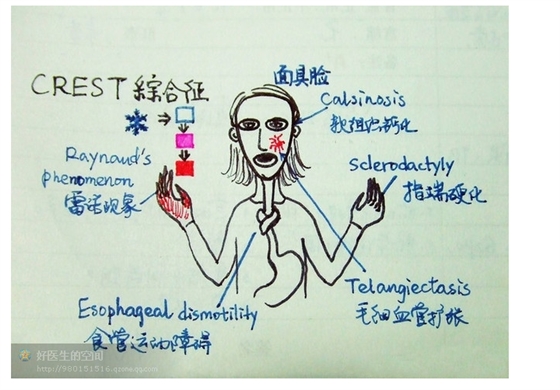 CREST 綜合征
面具脸
Calsinosis
软组织钙化
Raynaud's
phenomenon
雷诺现象
sclerodactyly
指端硬化
Telangiectasis
毛细血管扩张
Esophageal dismotility
食管运动障碍
好医生的空间
http://980151516.qzone.qq.com